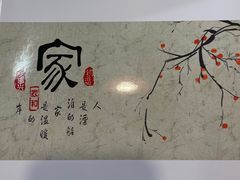 家
人
是漂
泊的船
家
是温暖
的
岸